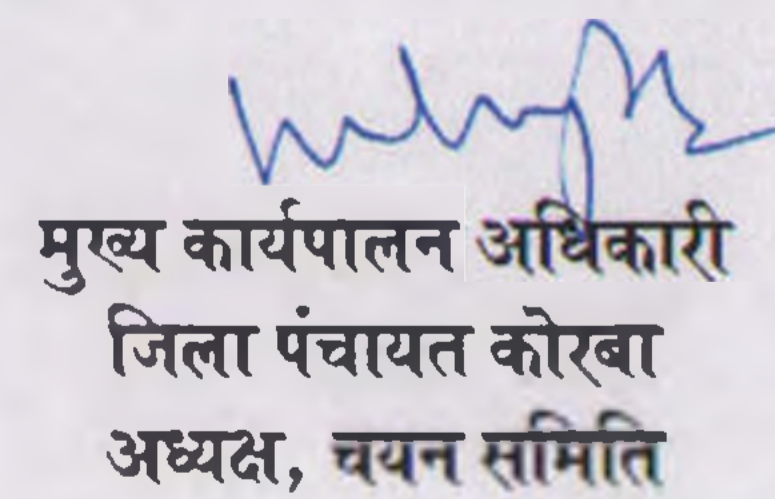 मुख्य कार्यपालन अधिकारी
जिला पंचायत कोरबा
अध्यक्ष, चयन समिति